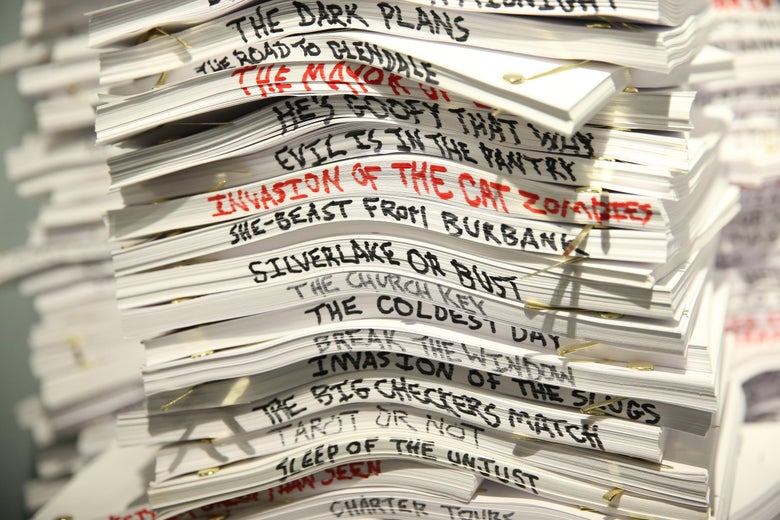 MIDNIGHT
THE DARK PLANS
THE ROAD TO GLENDALE
THE MAYOR OF
HE'S GOOFY THAT WAY
EVIL IS IN THE PANTRY
INVASION OF THE CAT ZOMBIES
SHE-BEAST FROM BURBANK
SILVERLAKE OR BUST
THE CHURCH KEY
THE COLDEST DAY
BREAK THE WINDOW
INVASION OF THE SLUGS
THE BIG CHECKERS MATCH
TAROT OR NOT
SLEEP OF THE UNJUST
THAN SEEN
CHARTER TOURS